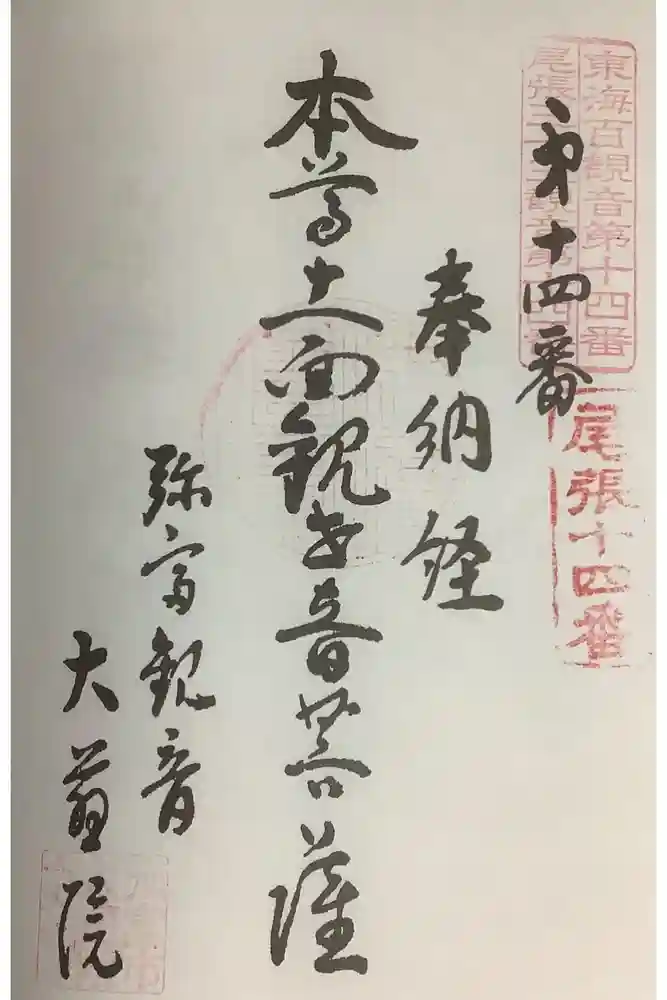 東海百観音第十四番
尾張三十三観音第十四番
尾張十四番
第十四番
奉納経
本尊十一面観世音菩薩
弥富観音
大慈院